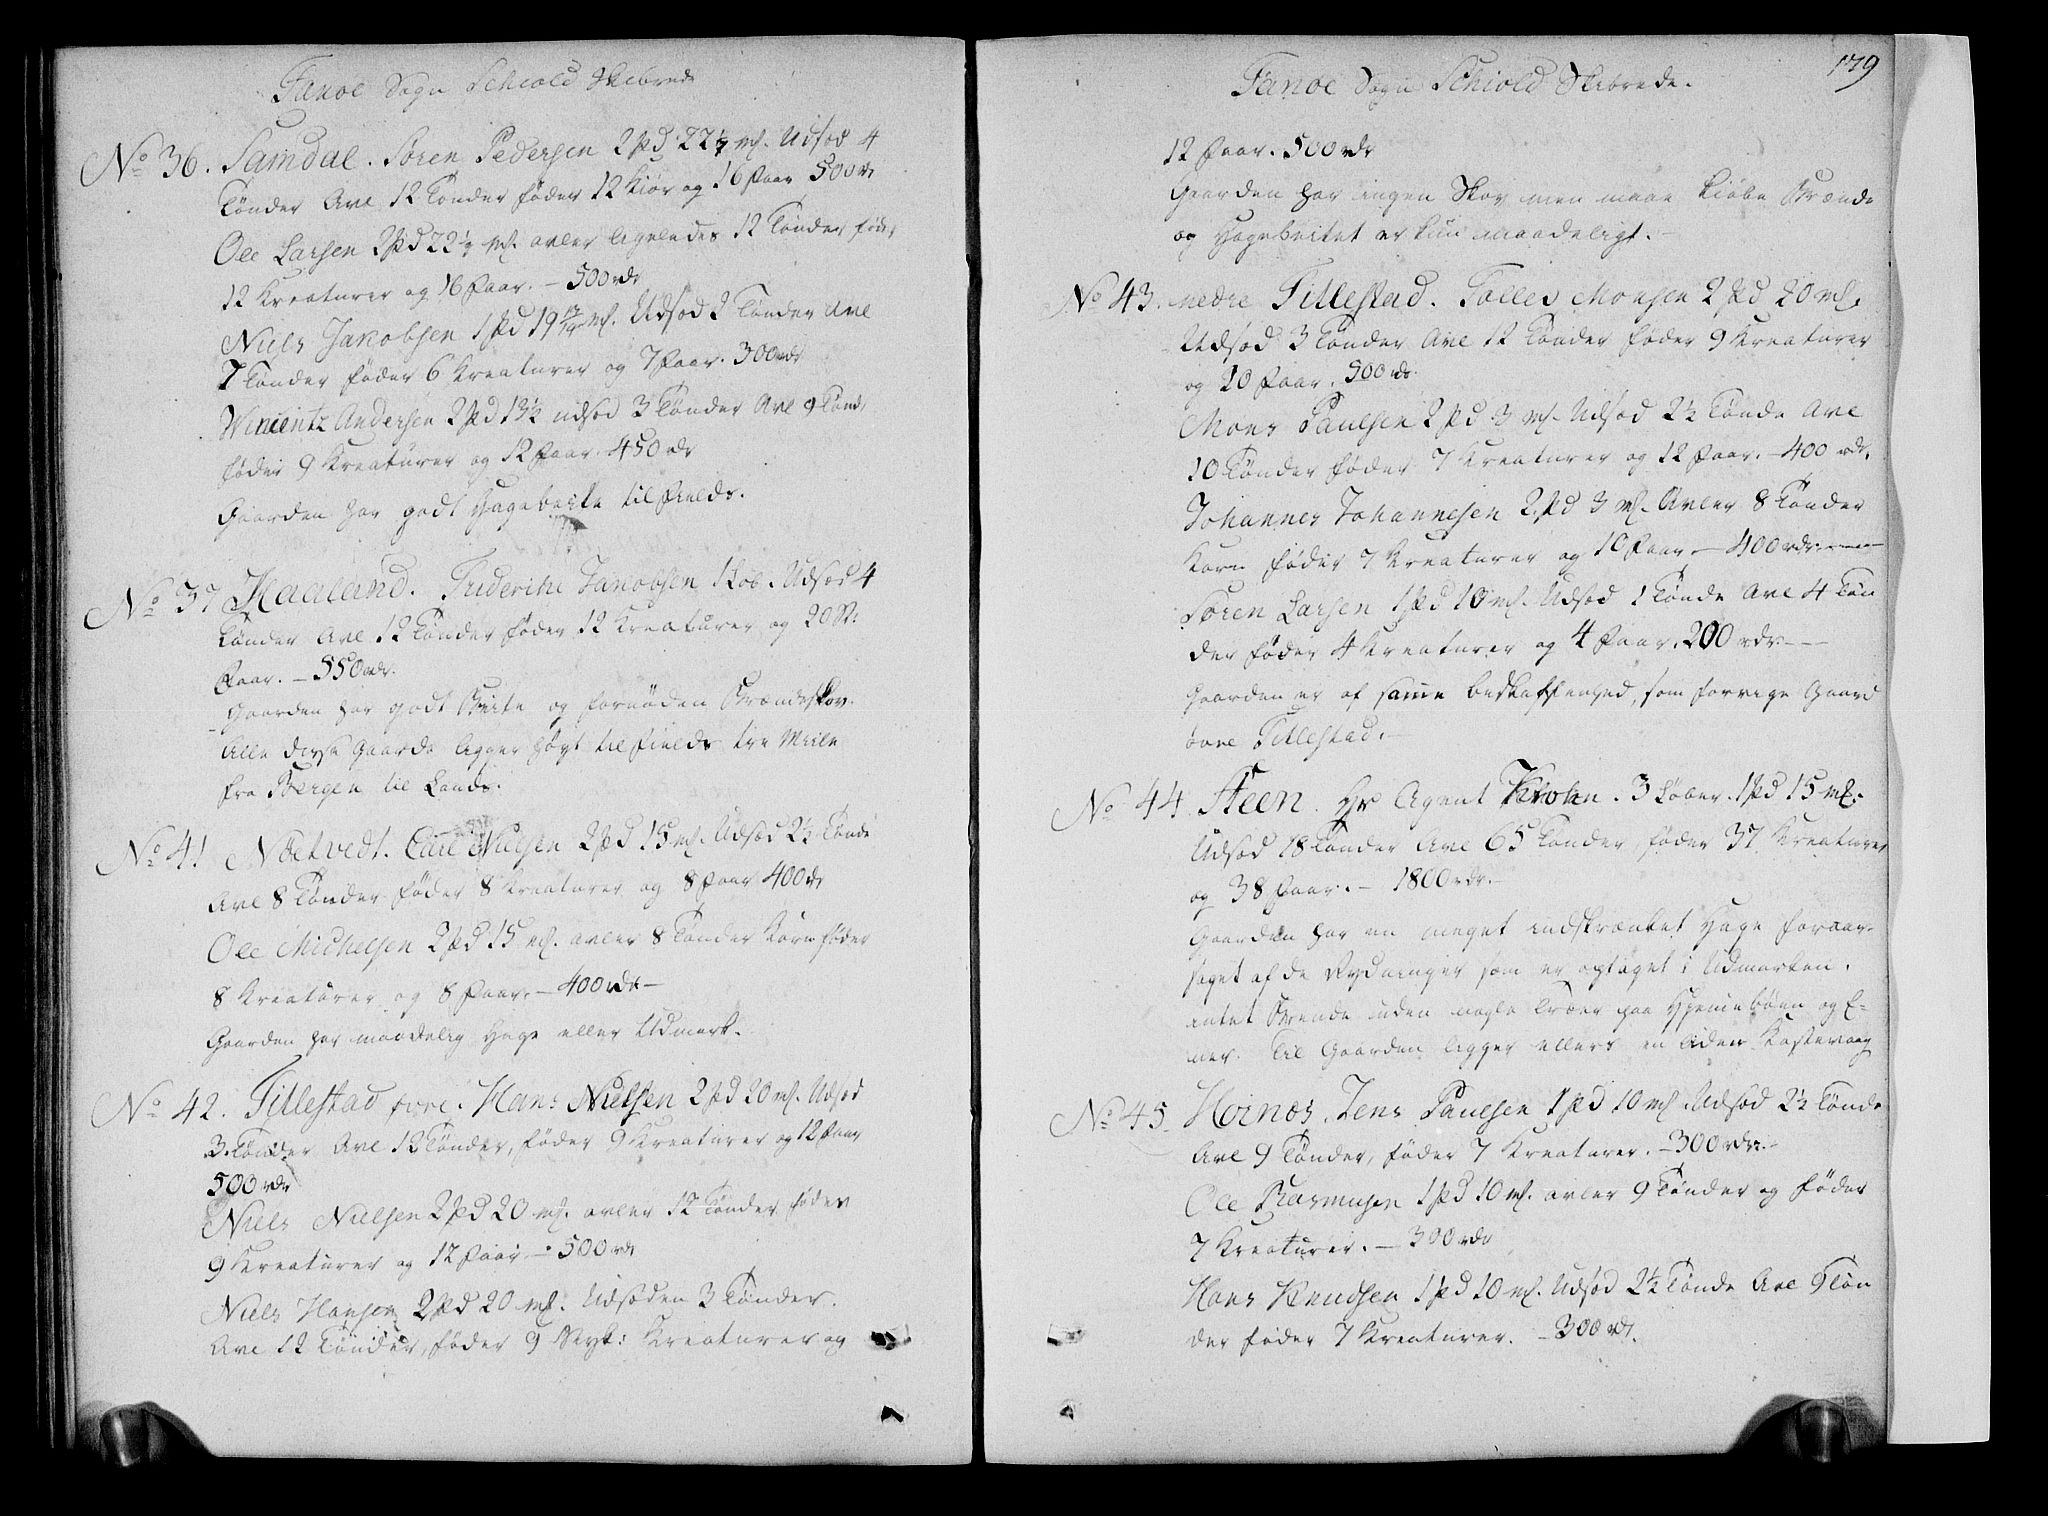 Fanoe Sogn Schiold Skibrede
No 36. Samdal. Sören Pedersen 2 pd 22½ mk. Udsød 4
Tønder Avl 12 Tønder føder 12 Kiør og 16 Faar 500 rd
Ole Larsen 2 pd 22½ mk. avler ligeledes 12 Tønder føder
12 Kreaturer og 16 Faar. – 500 rdr
Niels Jakobsen 1 pd 19 mk. Udsød 2 Tønder Avl
7 Tønder føder 6 Kreaturer og 7 Faar. 300 rdr
Wincentz Andersen 2 pd 13½ udsød 3 Tønder Avl 9 Tønd,
føder 9 Kreaturer og 12 Faar. 450 rdr
Gaarden har godt Hagebeite til Fields.
No 37 Haaland. Friderike Jakobsen 1 Løb. Udsød 4
Tønder Avl 12 Tønder føder 12 Kreaturer og 20 St:
Faar. – 550 rdr.
Gaarden har godt Beite og fornøden Brændeskov.
Alle disse Gaarde ligger høyt til Fields tre Miile
fra Bergen til Lands.
No 41 Nøetvedt. Carl Nielsen 2 pd 15 mk. Udsød 2½ Tønde
Avl 8 Tønder føder 8 Kreaturer og 8 Faar 400 rd
Ole Michelsen 2 pd 15 mk. avler 8 Tønder Korn føder
8 Kreaturer og 8 Faar. – 400 rdr –
Gaarden har maadelig Hage eller Udmark.
No 42. Tillestad øvre. Hans Nielsen 2 pd 20 mk. Udsød
3 Tønder Avl 12 Tønder, føder 9 Kreaturer og 12 Faar
500 rdr
Niels Nielsen 2 pd 20 mk. avler 12 Tønder føder
9 Kreaturer og 12 Faar – 500 rdr
Niels Hansen 2 pd 20 mk. Udsøden 3 Tønder.
Avl 12 Tønder, føder 9 Styk: Kreaturer og
179
Fanoe Sogn Schiold Skibrede.
12 Faar. 500 rdr
Gaarden har ingen Skov men maae kiøbe Brænde
og Hagebeitet er kun maadeligt. –
No 43. nedre Tillestad. Tolles Monsen 2 pd 20 mk.
Udsød 3 Tønder Avl 12 Tønder føder 9 Kreaturer
og 10 Faar. 500 rdr.
Mons Paulsen 2 pd 3 mk. Udsød 2½ Tønde Avl
10 Tønder føder 7 Kreaturer og 12 Faar. – 400 rdr.
Johannes Johannesen 2 pd 3 mk. Avler 8 Tønder
Korn føder 7 Kreaturer og 10 Faar – 400 rdr
Sören Larsen 1 pd 10 mk. Udsød 1 Tønde Avl 4 Tøn
der føder 4 Kreaturer og 4 Faar. 200 rdr. – –
Gaarden er af samme beskaffenhed, som forrige Gaard
øvre Tillestad. –
No 44 Steen. Hr Agent Krohn. 3 Løber. 1 pd 15 mk.
Udsød 18 Tønder Avl 65 Tønder, føder 37 Kreaturer
og 38 Faar. – 1800 rdr. –
Gaarden har en meget indskrænket Hage foraar-
saget af de Rydninger som er optaget i Udmarken.
intet Brende uden nogle Træer paa Hiemmebøen og E-
ner. Til Gaarden ligger ellers en liden Kastevaag
No 45. Hoinæs. Jens Paulsen 1 pd 10 mk Udsød 2½ Tønde
Avl 9 Tønder, føder 7 Kreaturer. – 300 rdr. –
Ole Rasmusen 1 pd 10 mk. avler 9 Tønder og føder
7 Kreaturer. – 300 rdr
Hans Knudsen 1 pd 10 mk. Udsød 2½ Tønde Avl 9 Tøn
der føder 7 Kreaturer. – 300 rdr.